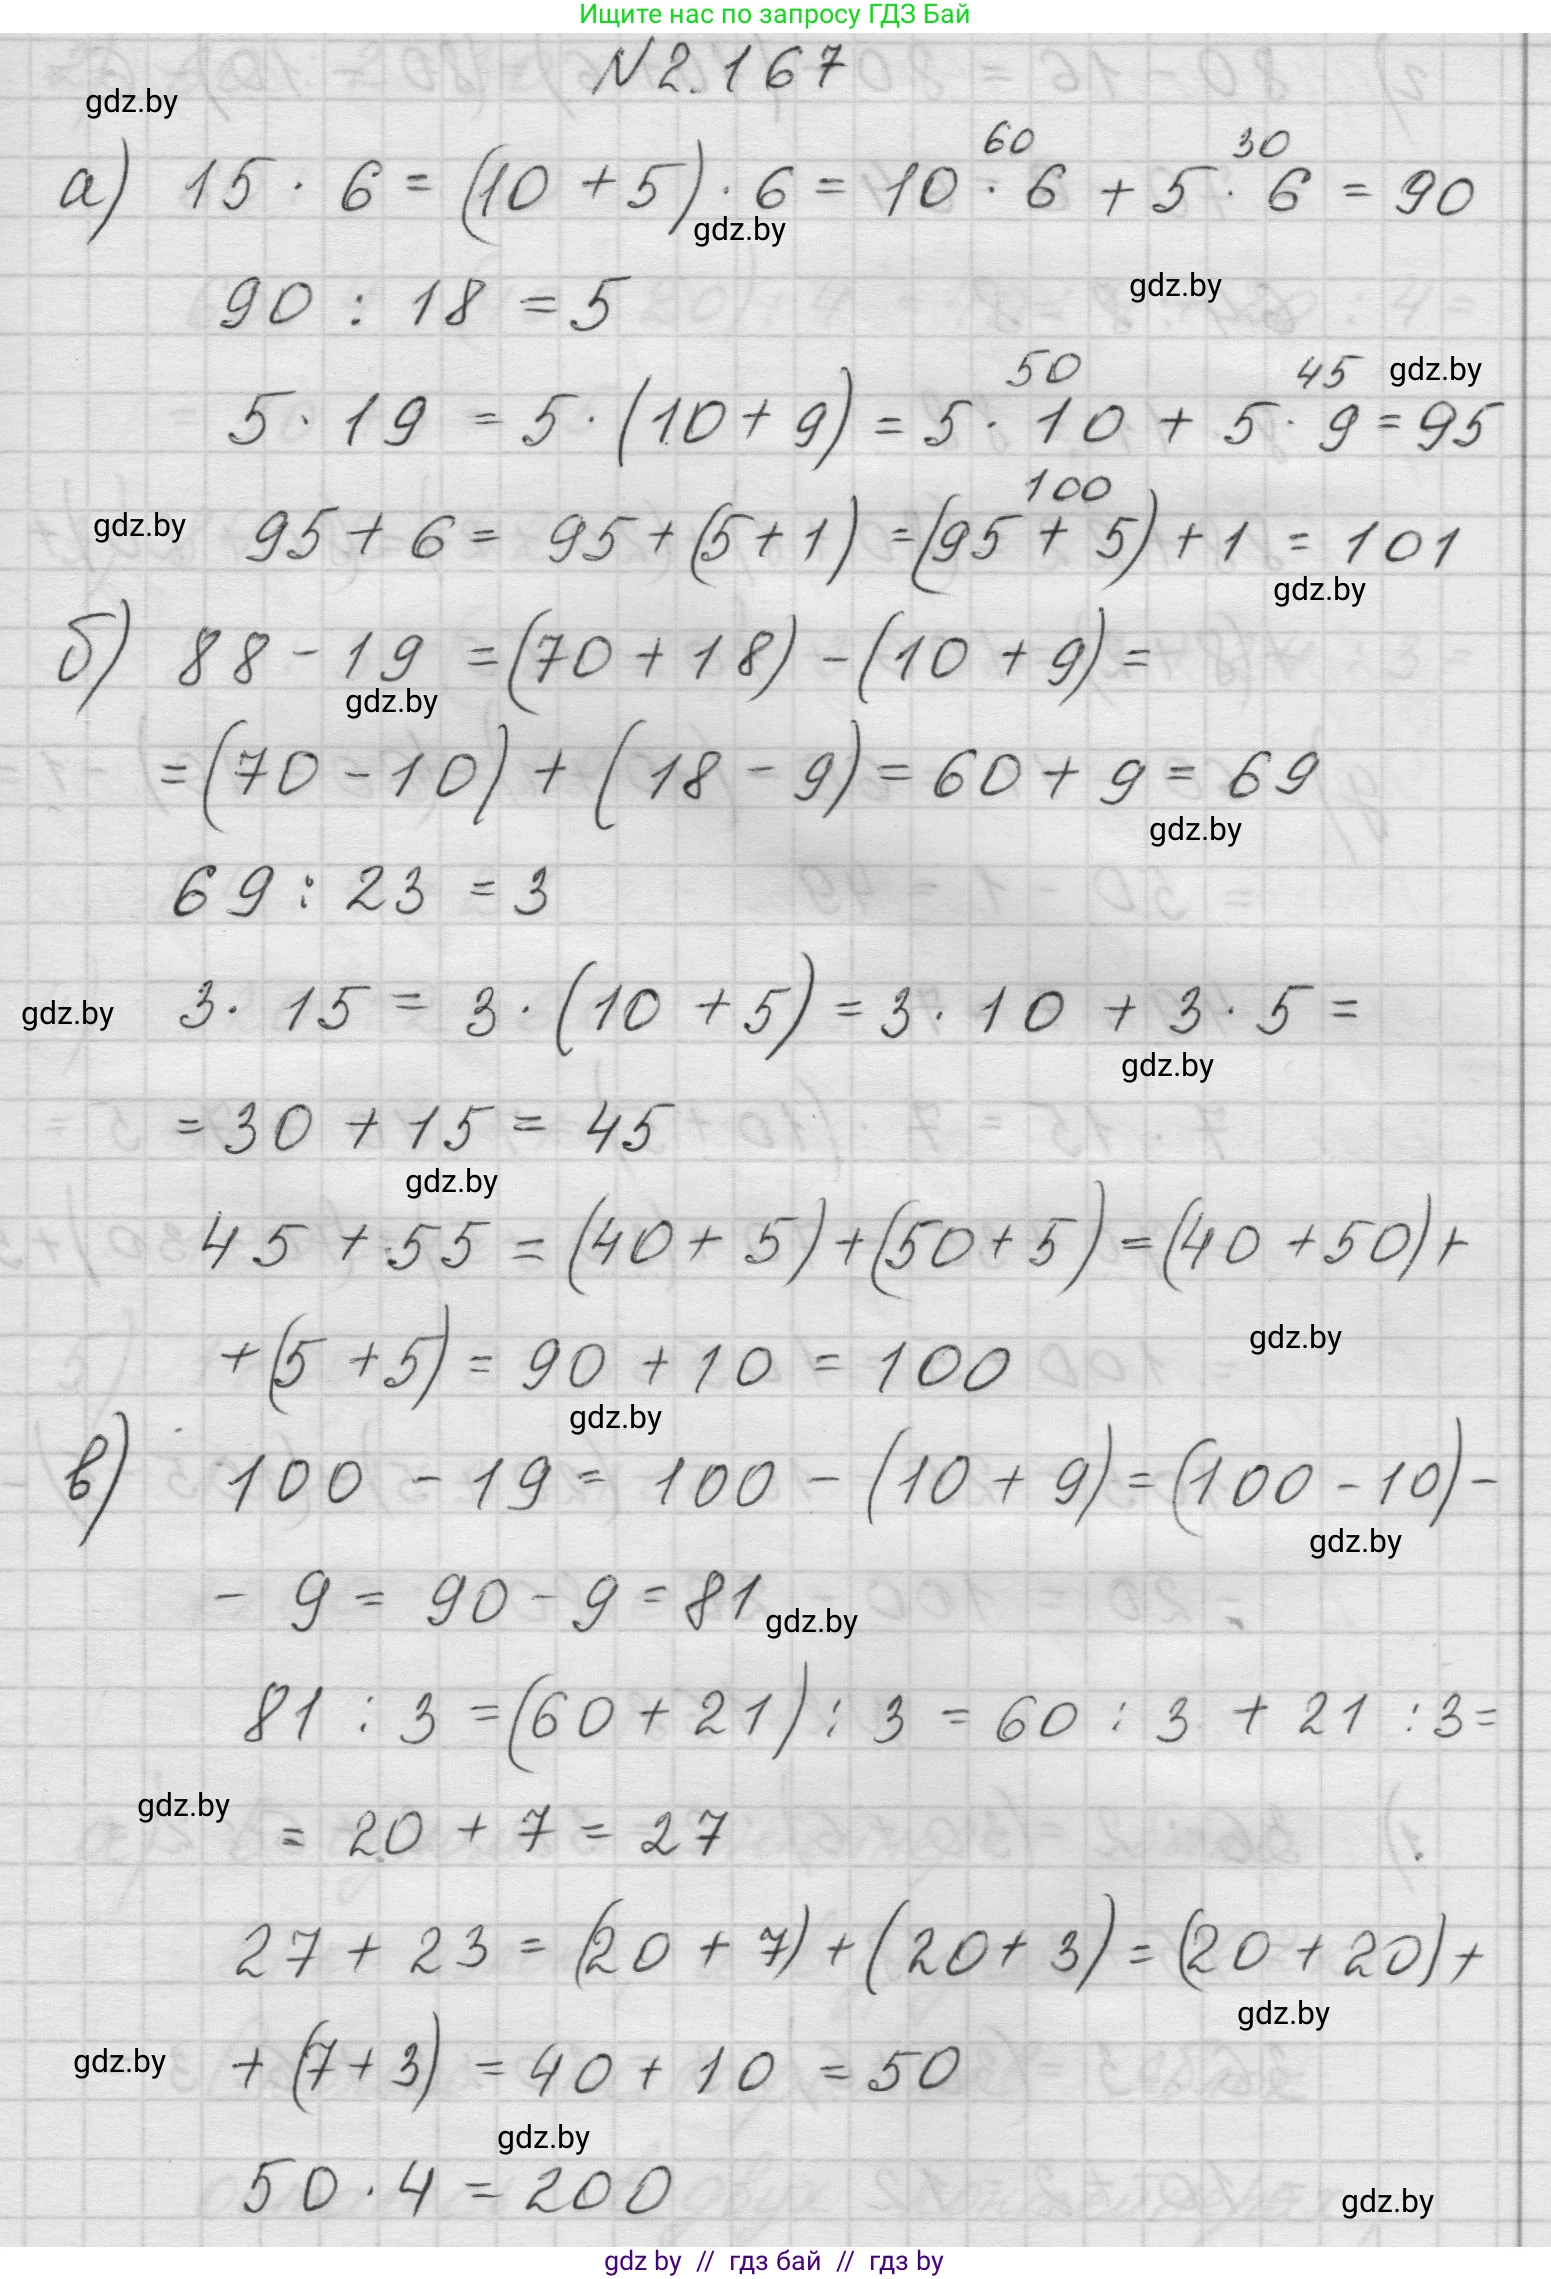 Ищите нас по запросу ГДЗ Бай
N 2.167
gdz.by
60 30
а) 15 · 6 = (10 + 5) · 6 = 10 · 6 + 5 · 6 = 90
gdz.by
90 : 18 = 5
gdz.by
50 45 gdz.by
5 · 19 = 5 · (10 + 9) = 5 · 10 + 5 · 9 = 95
100
gdz.by 95 + 6 = 95 + (5 + 1) = (95 + 5) + 1 = 101
gdz.by
б) 88 - 19 = (70 + 18) - (10 + 9) =
gdz.by
= (70 - 10) + (18 - 9) = 60 + 9 = 69
gdz.by
69 : 23 = 3
gdz.by 3 · 15 = 3 · (10 + 5) = 3 · 10 + 3 · 5 =
gdz.by
= 30 + 15 = 45
gdz.by
45 + 55 = (40 + 5) + (50 + 5) = (40 + 50) +
gdz.by
+ (5 + 5) = 90 + 10 = 100
gdz.by
в) 100 - 19 = 100 - (10 + 9) = (100 - 10) -
gdz.by
- 9 = 90 - 9 = 81
gdz.by
81 : 3 = (60 + 21) : 3 = 60 : 3 + 21 : 3 =
gdz.by
= 20 + 7 = 27
27 + 23 = (20 + 7) + (20 + 3) = (20 + 20) +
gdz.by
gdz.by + (7 + 3) = 40 + 10 = 50
gdz.by
50 · 4 = 200
gdz.by
gdz by // гдз бай // гдз by